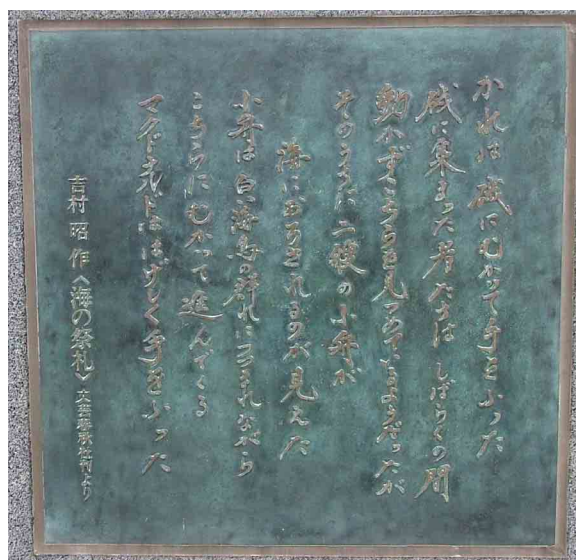 かれは磯にむかって手をふった
磯に集まった者たちは しばらくの間
動かずこちらを見つめているようだったが
そのうちに二艘の小舟が
海におろされるのが見えた
小舟は白い海鳥の群れにつつまれながら
こちらにむかって進んでくる
マクドナルドははげしく手をふった
吉村 昭 作〈海の祭礼〉文芸春秋社刊より